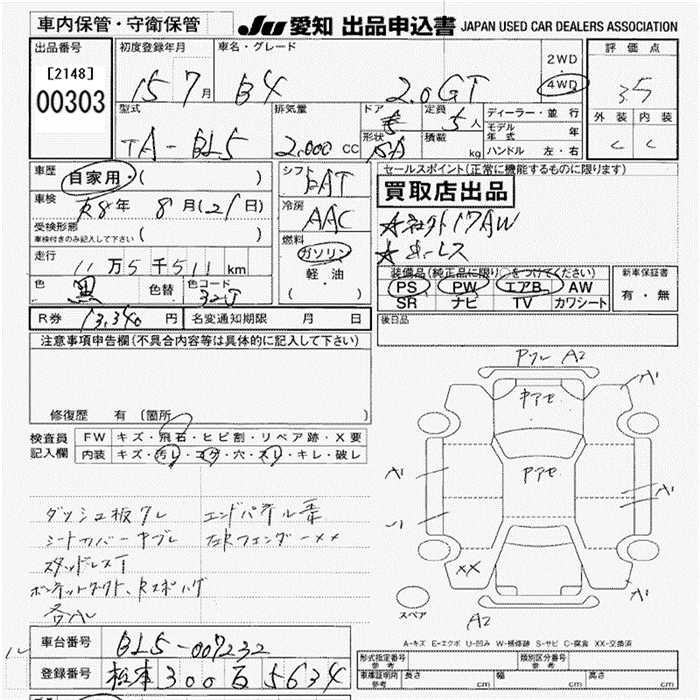 車内保管・守衛保管 JU 愛知 出品申込書 JAPAN USED CAR DEALERS ASSOCIATION
出品番号 初度登録年月 車名・グレード 2WD 評価点
[2148] 00303 15 7月 B4 2.0GT 4WD 3.5
型式 排気量 ドア 定員 5人 ディーラー・並行 外装 内装
TA-BL5 2,000 CC 形状 SA 積載 kg モデル年式 年 C C
ハンドル 左・右
車歴 自家用・( ) シフト FAT セールスポイント(正常に機能するものに限ります)
車検 R8年 8月(21日) 冷房 AAC 買取店出品
受検形態 車検付きのみ記入して下さい ( ) 17AW
走行 11万5千511km 燃料 ガソリン・軽・油 ( )
色 黒 色替 色コード 32J 装備品(純正品に限り○をつけてください) 新車保証書
PS PW エアB AW 有・無
SR ナビ TV カワシート
R券 13,340円 名変通知期限 月 日 後日品
注意事項申告欄(不具合内容等は具体的に記入して下さい)
Pクレ A2
中アセ
A
修復歴 有 (箇所
検査員記入欄 FW キズ・飛石・ヒビ割・リペア跡・X要
内装 キズ・汚レ・コゲ・穴・スレ・キレ・破レ
中アセ
ダッシュ板クレ エンドパネル
シートカバー
スタッドレスT
ボンネットダクト、Rスポ
XX
A
スペア A2
A-キズ E-エクボ U-凹み W-補修跡 S-サビ C-腐食 XX-交換済
車台番号 BL5-007232
登録番号 松本300 5634
形式指定番号 参考 類別区分番号 参考
車庫証明用 参考 長さ cm 幅 cm 高さ cm